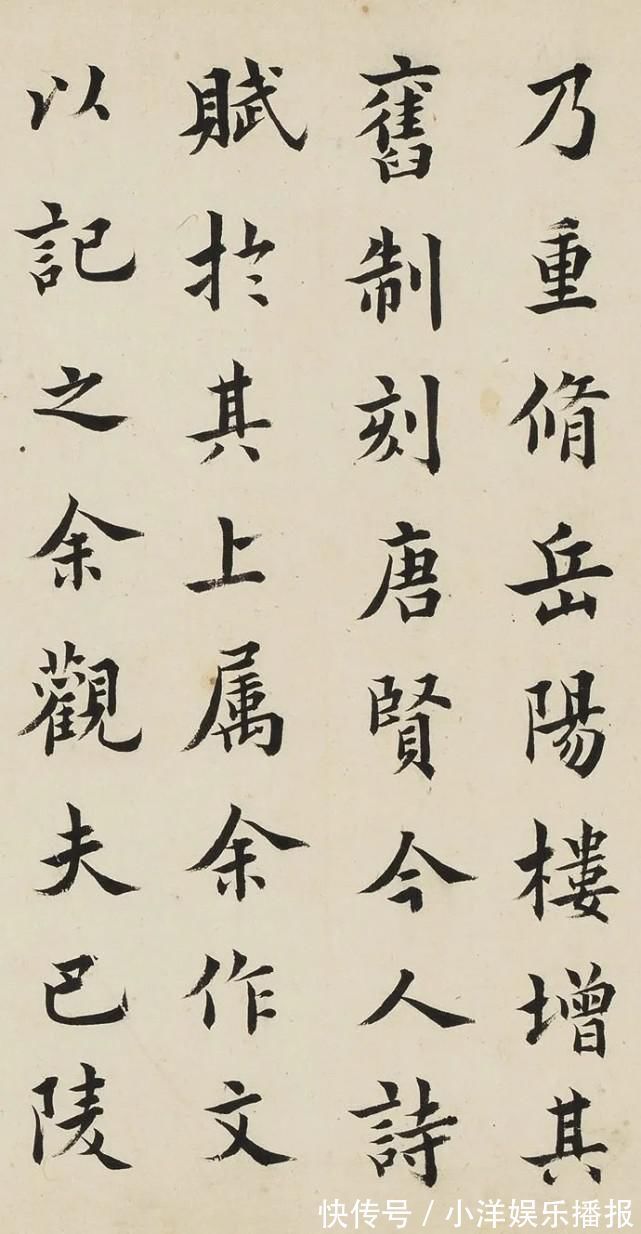 乃重脩岳陽樓增其
舊制刻唐賢今人詩
賦於其上属余作文
以記之余觀夫巴陵
快传号/小洋娱乐播报